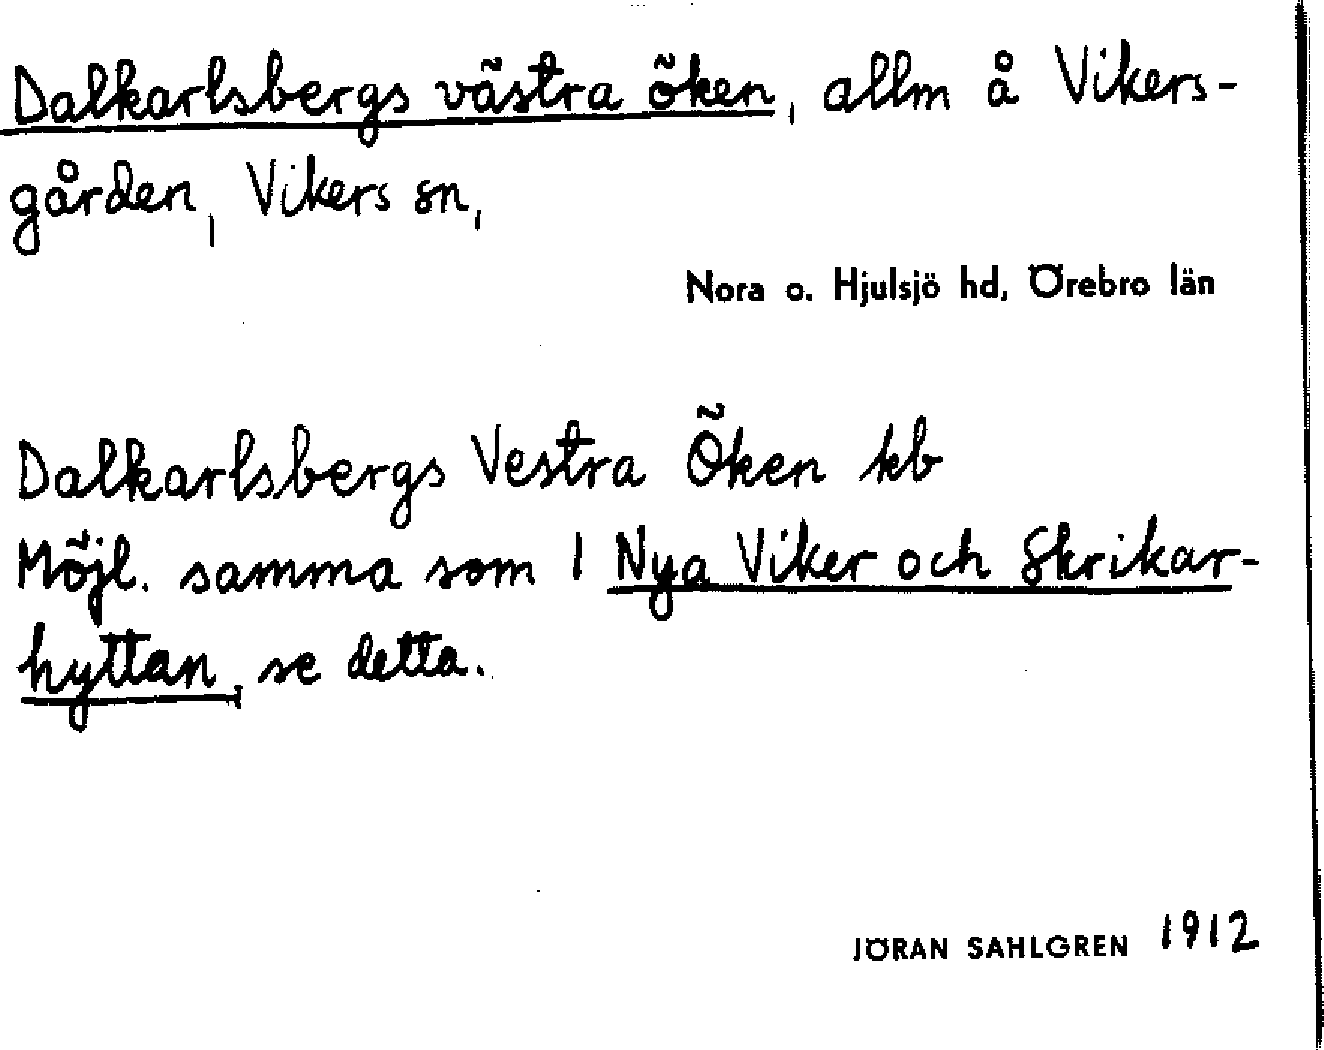 Dalkarlsbergs västra öken, allm å Vikers-
gården, Vikers sn,
Nora o. Hjulsjö hd, Örebro län
Dalkarlsbergs Vestra Öken kb
Möjl. samma som 1 Nya Viker och Skrikar-
hyttan, se detta.
JÖRAN SAHLGREN 1912